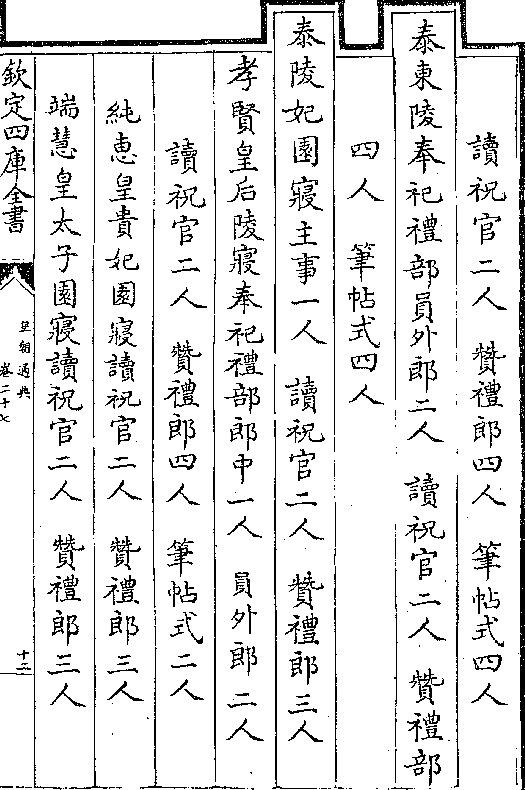 讀祝官二人　贊禮郎四人　筆帖式四人
泰東陵奉祀禮部員外郎二人　讀祝官二人　贊禮部
四人　筆帖式四人
泰陵妃園寢主事一人　讀祝官二人　贊禮郎三人
孝賢皇后陵寢奉祀禮部郎中一人　員外郎二人
讀祝官二人　贊禮郎四人　筆帖式二人
純惠皇貴妃園寢讀祝官二人　贊禮郎三人
端慧皇太子園寢讀祝官二人　贊禮郎三人
欽定四庫全書
皇朝通典
卷二十七
十二